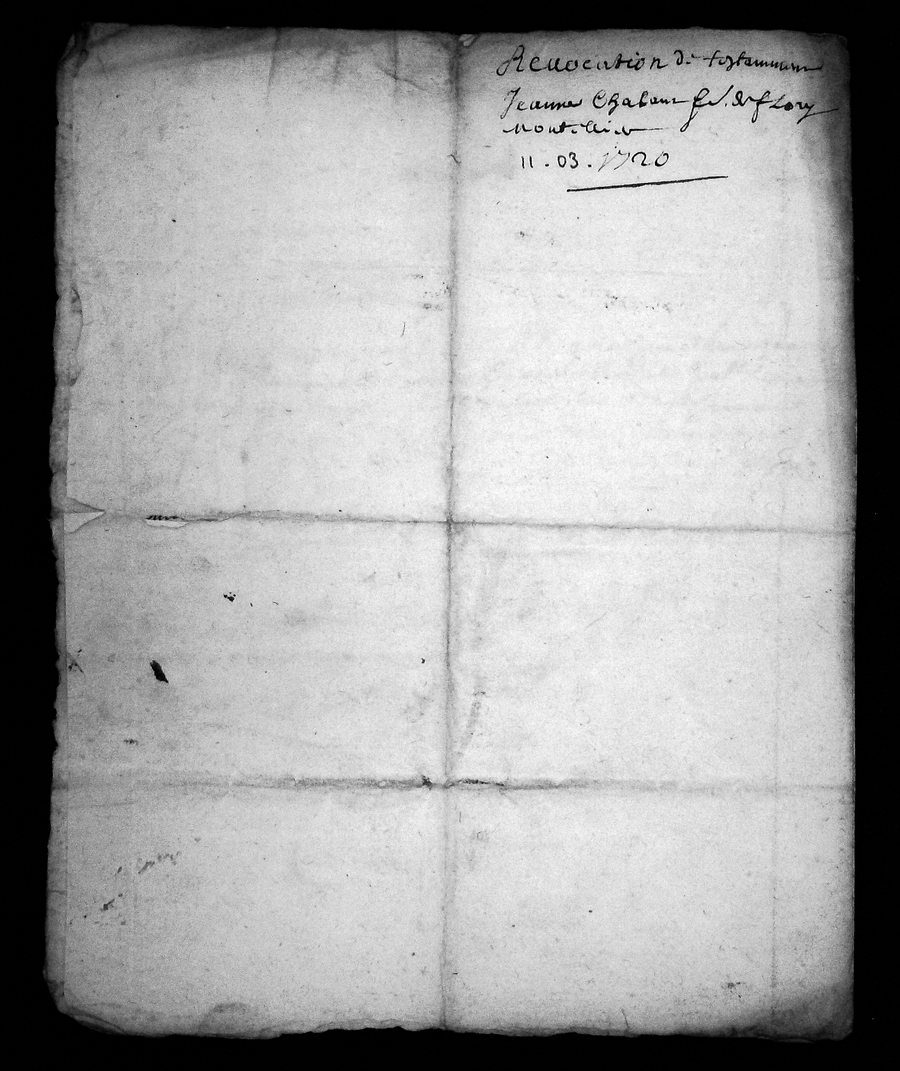 Revocation de testammant
Jeanne Chabau f. J. de flory
Montellier
11. 03. 1720